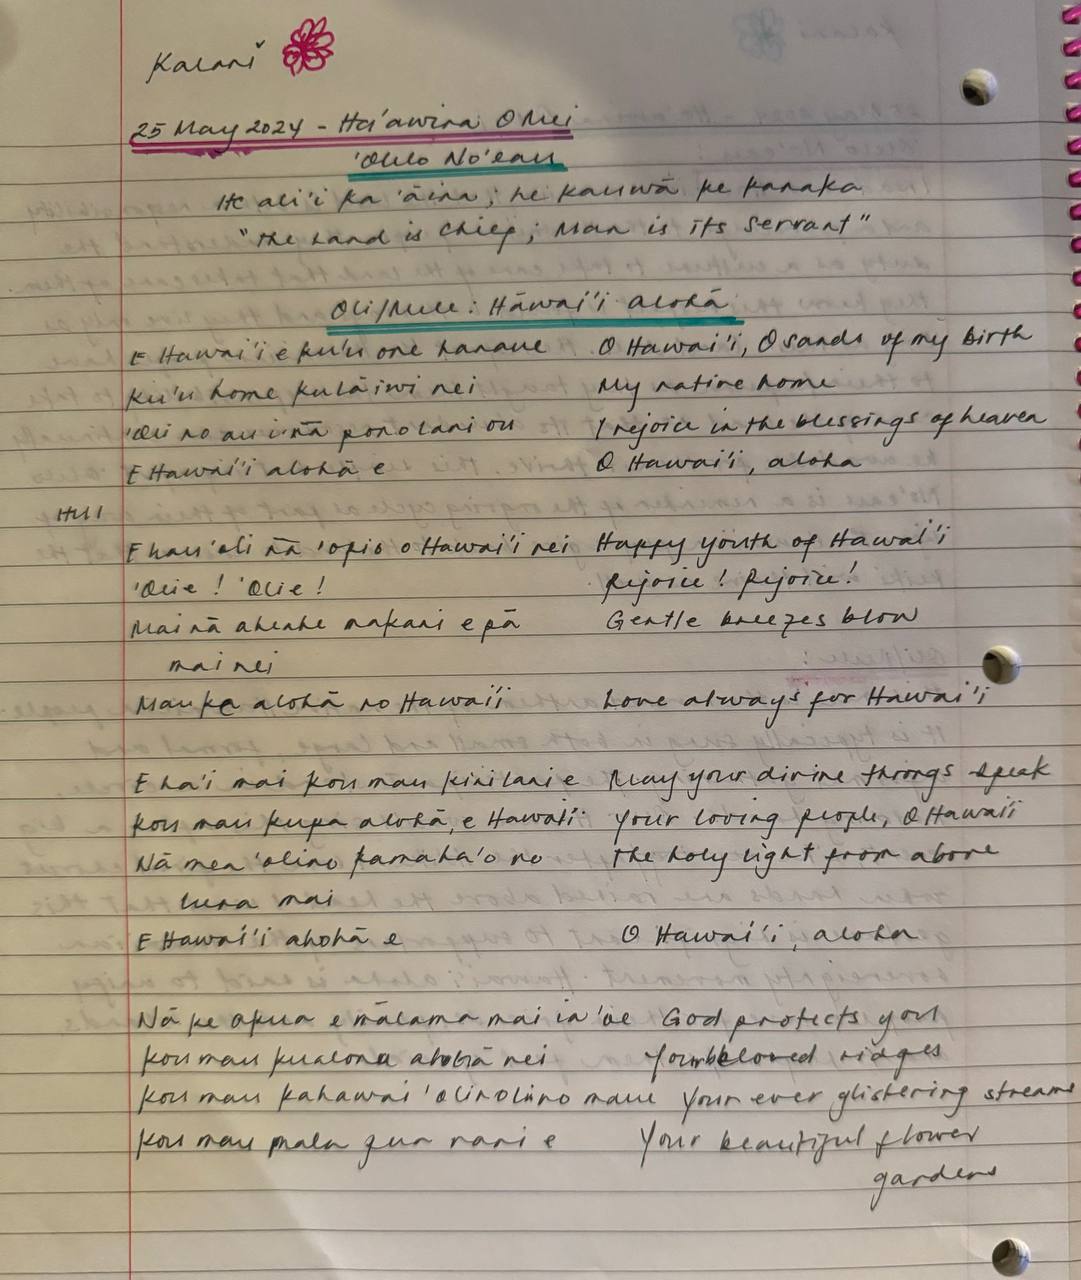 Kalani
25 May 2024 - Ha'awina O Mei
'Olelo No'eau
He ali'i ka 'āina; he kauwā ke kanaka
"The Land is Chief; Man is its servant"
Oli/Mele: Hāwai'i alohā
E Hawai'i e ku'u one hanaue O Hawai'i, O sands of my birth
Ku'u home kulāiwi nei My native home
'Oli no au i nā pono lani ou I rejoice in the blessings of heaven
E Hawai'i alohā e O Hawai'i, aloha
HUI
E hau'oli nā 'opio o Hawai'i nei Happy youth of Hawai'i
'Olie! 'Olie! Rejoice! Rejoice!
Mai nā aheahe makani e pā Gentle breezes blow
mai nei
Mau ke alohā no Hawai'i Love always for Hawai'i
E ha'i mai kou mau kini lani e May your divine throngs speak
Kou mau kupa alohā, e Hawai'i Your loving people, O Hawai'i
Nā mea 'olino kamaha'o no The holy light from above
luna mai
E Hawai'i ahohā e O Hawai'i, aloha
Nā ke akua e mālama mai ia 'oe God protects you
Kou mau kualona alohā nei Your beloved ridges
Kou mau kahawai 'olinolino maue Your ever glistering streams
Kou mau mala pua nani e Your beautiful flower
gardens